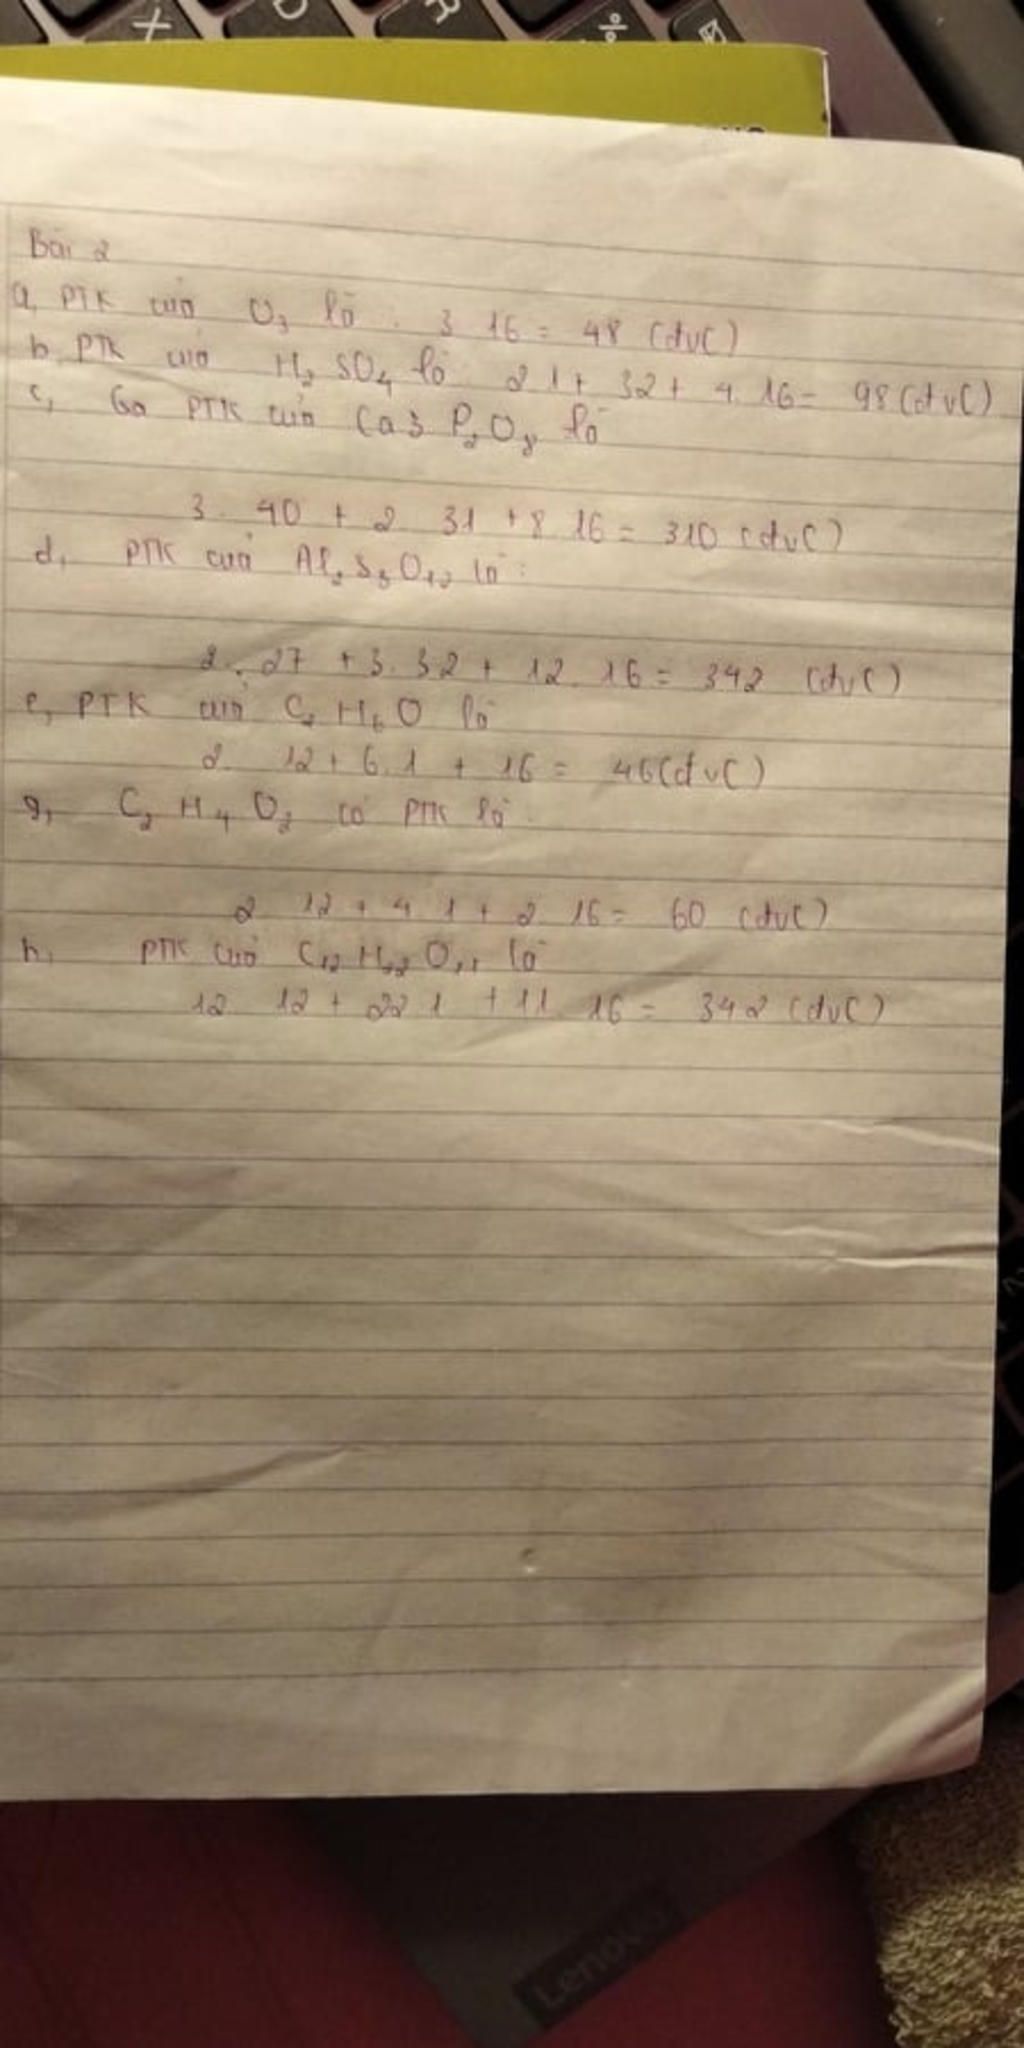 Bài 2
a, PTK của O₃ là : 3 . 16 = 48 (đvC)
b, PTK của H₂SO₄ là : 2 . 1 + 32 + 4 . 16 = 98 (đvC)
c, PTK của Ca3 P₂O₈ là
3 . 40 + 2 . 31 + 8 . 16 = 310 (đvC)
d, PTK của Al₂S₃O₁₂ là :
2 . 27 + 3 . 32 + 12 . 16 = 342 (đvC)
e, PTK của C₂H₆O là
2 . 12 + 6 . 1 + 16 = 46 (đvC)
g, C₂H₄O₂ có PTK là :
2 . 12 + 4 . 1 + 2 . 16 = 60 (đvC)
h, PTK của C₁₂H₂₂O₁₁ là
12 . 12 + 22 . 1 + 11 . 16 = 342 (đvC)
Lenovo